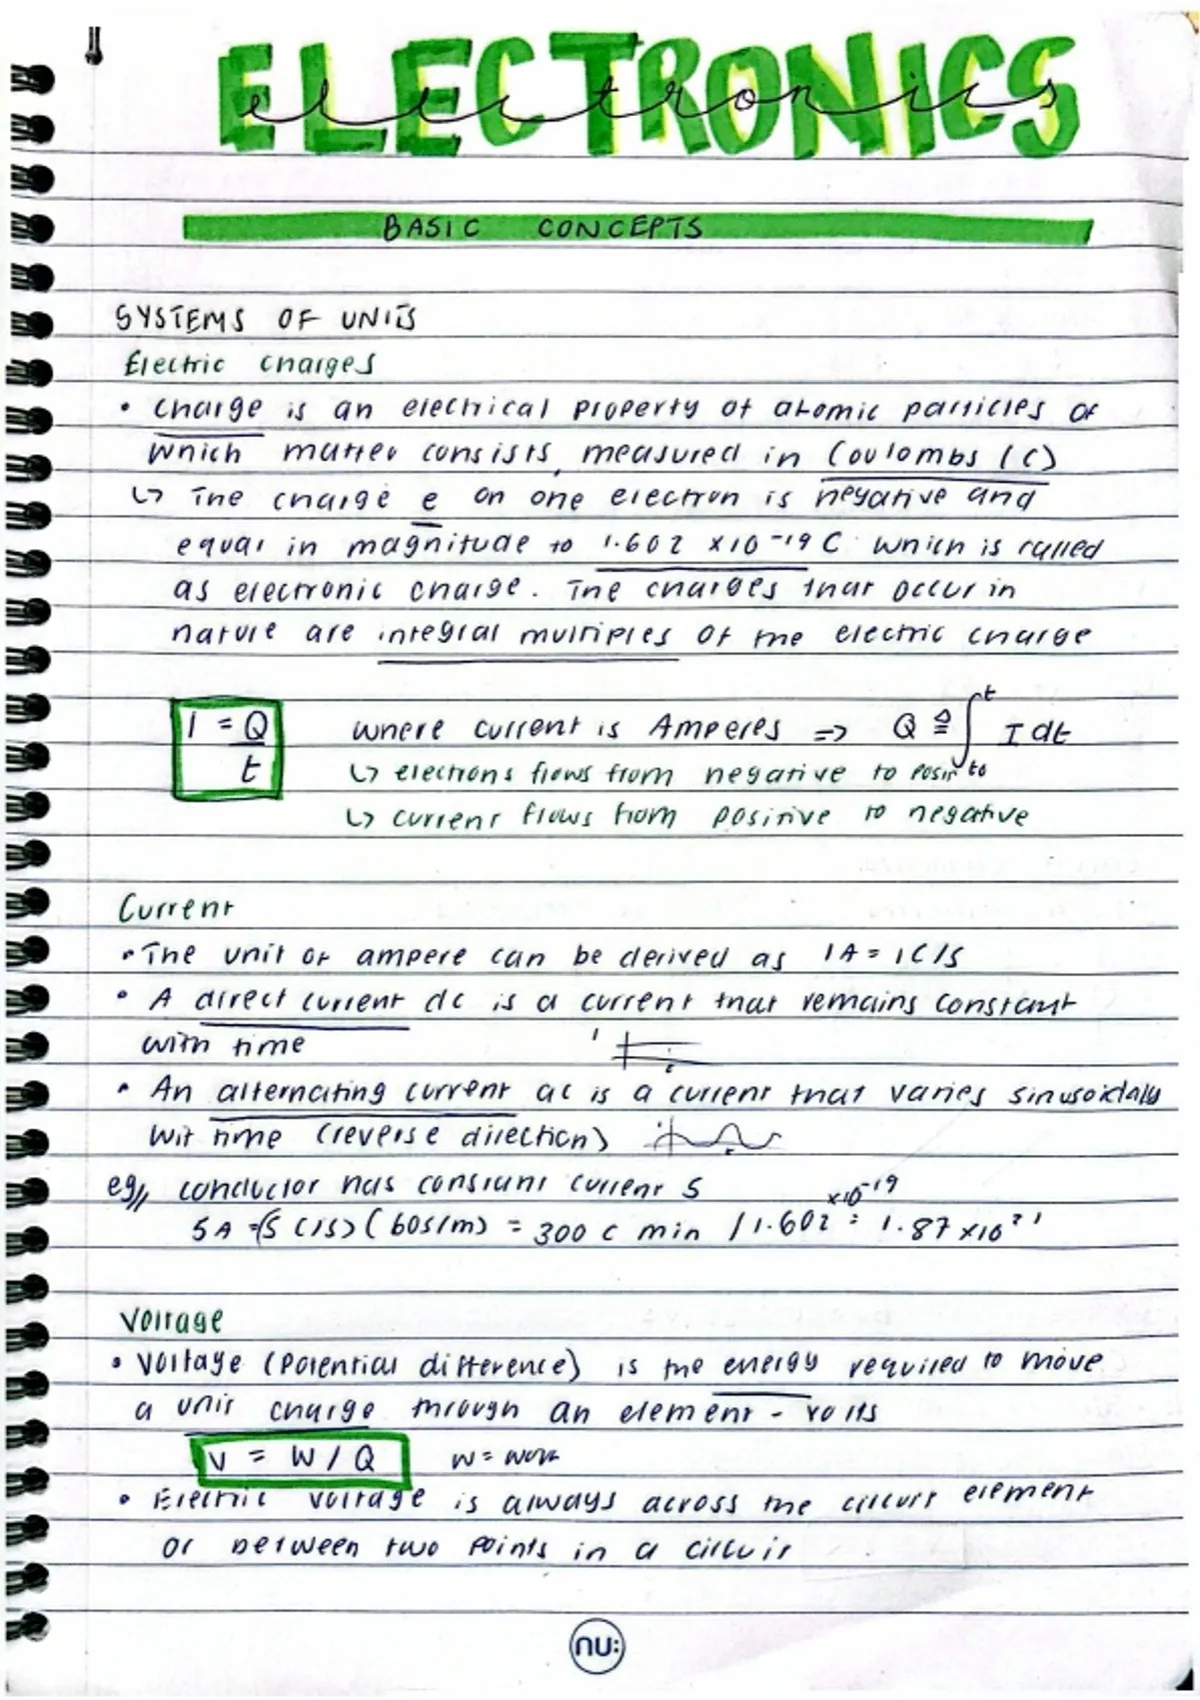 ELECTRONICS
electronics
BASIC CONCEPTS
SYSTEMS OF UNITS
Electric charges
• charge is an electrical property of atomic particles of
which matter consists, measured in Coulombs (C)
↳ The charge e on one electron is negative and
equal in magnitude to 1.602 x10⁻¹⁹ C which is called
as electronic charge. The charges that occur in
nature are integral multiples of the electric charge
I = Q/t where current is Amperes => Q ≙ ∫ₜ₀ᵗ I dt
↳ electrons flows from negative to posit
↳ current flows from positive to negative
Current
• The unit of ampere can be derived as 1A = 1C/S
• A direct current dc is a current that remains constant
with time I t
• An alternating current ac is a current that varies sinusoidally
wit time (reverse direction)
eg// conductor has constant current 5
5A = (5 C/S) (60s/m) = 300 C min / 1.602 x10⁻¹⁹ = 1.87 x10²¹
Voltage
• Voltage (Potential difference) is the energy required to move
a unit charge through an element - volts
V = W / Q W = work
• Electric voltage is always across the circuit element
or between two points in a circuit
nu: